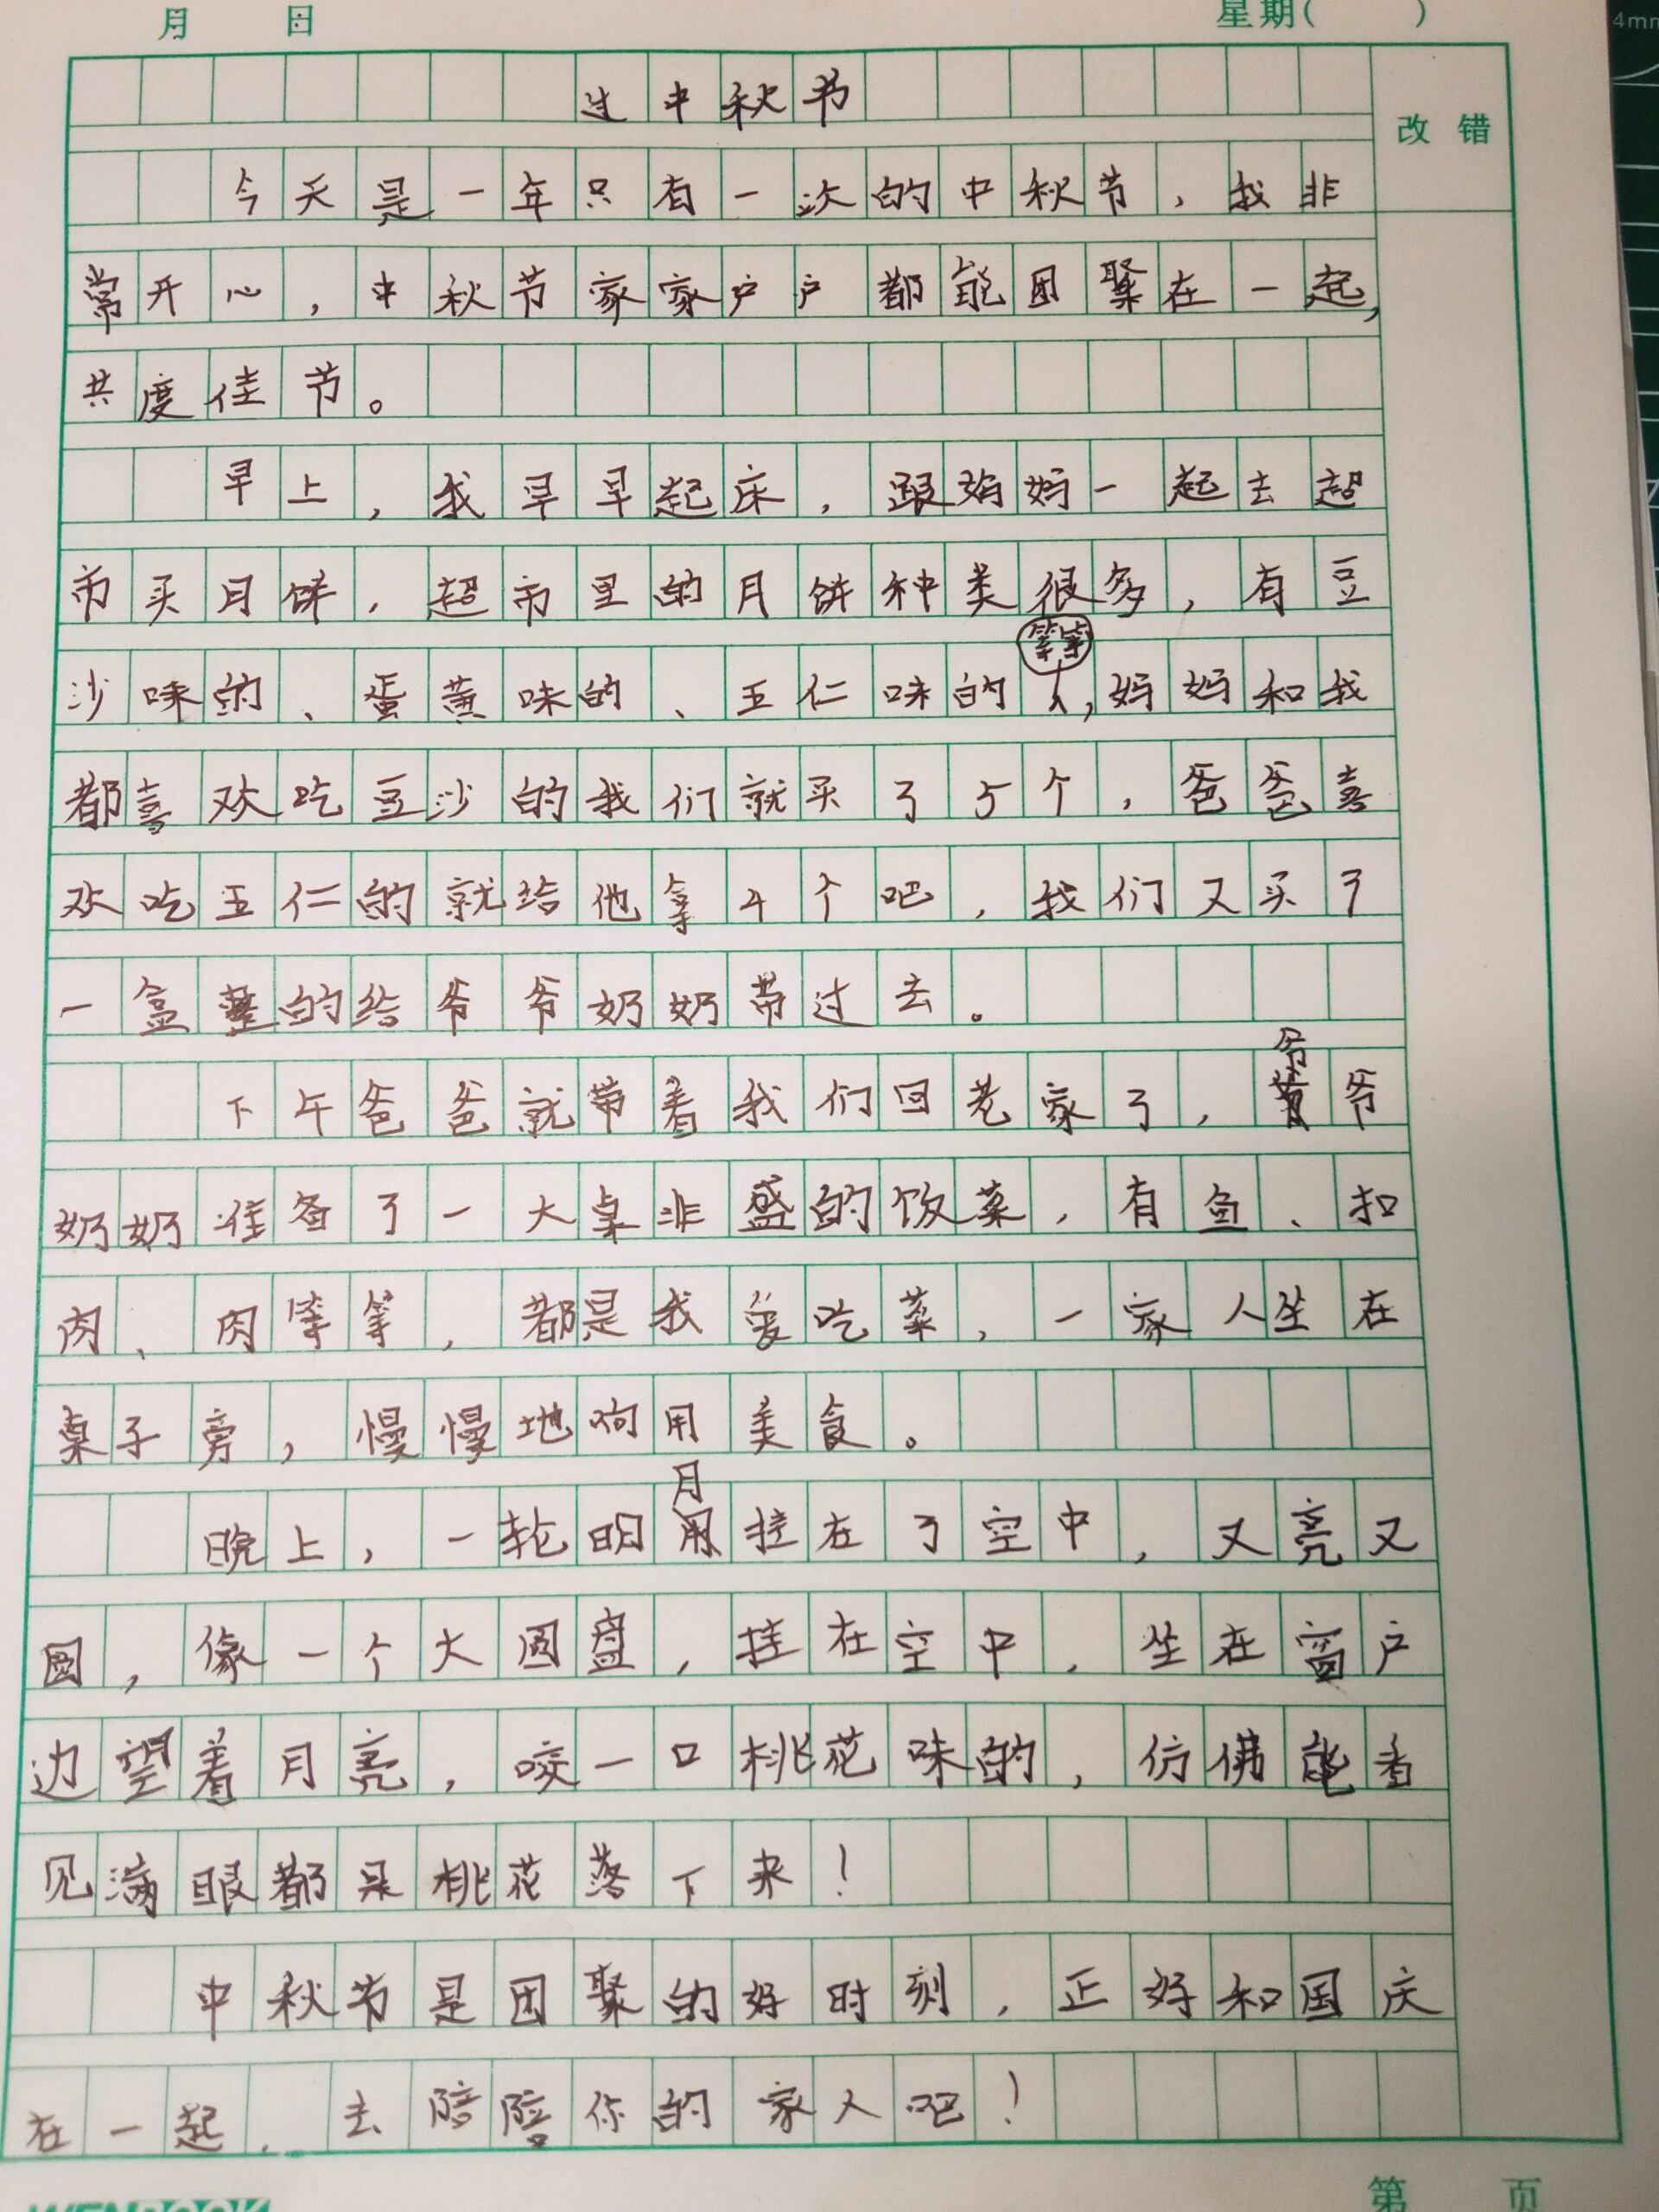 月 日 星期( )
4mm
过中秋节
改错
今天是一年只有一次的中秋节，我非
常开心，中秋节家家户户都能团聚在一起，
共度佳节。
早上，我早早起床，跟妈妈一起去超
市买月饼，超市里的月饼种类很多，有豆
沙味的、蛋黄味的、五仁味的等等，妈妈和我
都喜欢吃豆沙的我们就买了5个，爸爸喜
欢吃五仁的就给他拿4个吧，我们又买了
一盒整的给爷爷奶奶带过去。
下午爸爸就带着我们回老家了，爷爷
奶奶准备了一大桌非盛的饭菜，有鱼、扣
肉、肉等等，都是我爱吃菜，一家人坐在
桌子旁，慢慢地响用美食。
晚上，一轮明月挂在了空中，又亮又
圆，像一个大圆盘，挂在空中，坐在窗户
边望着月亮，咬一口桃花味的，仿佛能看
见满眼都是桃花落下来！
中秋节是团聚的好时刻，正好和国庆
在一起，去陪陪你的家人吧！
第 页